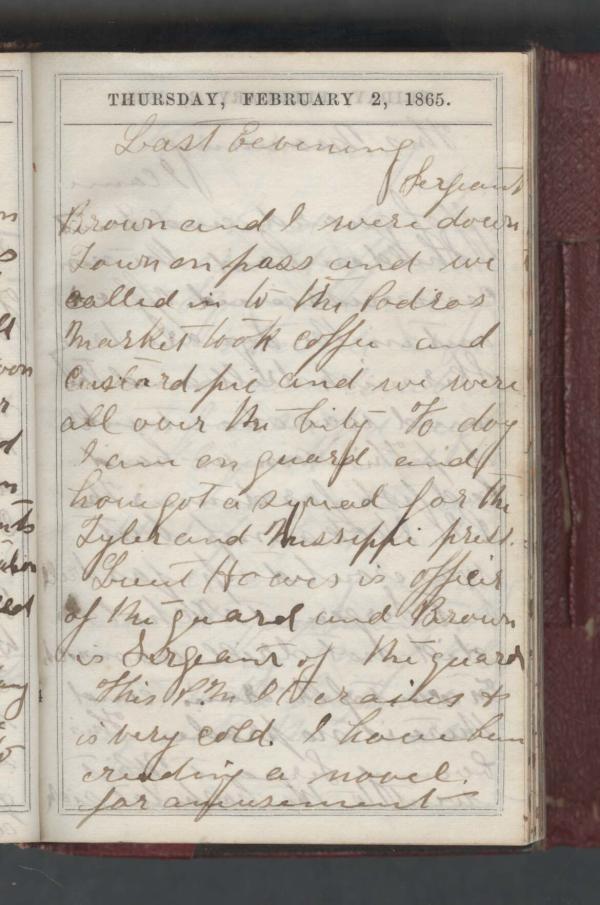 THURSDAY, FEBRUARY 2, 1865.
Last Evening
Sergeant
Brown and I were down
Town on pass and we
called in to the Podras
Market took coffee and
custard pie and we were
all over the City To day
I am on guard and
have got a squad for the
Tyler and Missippi press.
Lieut Hawes is officer
of the guard and Brown
is Sergeant of the guard
This P.M. It raines &
is very cold. I have been
reading a novel.
for amusement